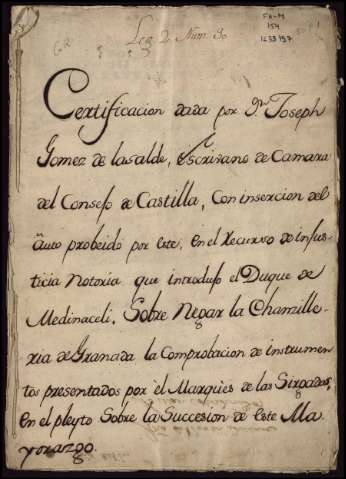 Leg. 2. Num. 30
FA-M
154
1
Certificacion dada por Dn. Joseph
Gomez de lasalde, Escrivano de Camara
del Consejo de Castilla, Con insercion del
auto probeido por este, en el Recurso de injus-
ticia Notoria que introdujo el Duque de
Medinaceli, Sobre Negar la Chanzille-
ria de Granada la Comprobacion de instrumen
tos presentados por el Marques de las Sirgadas,
en el pleyto Sobre la Succesion de este Ma
yorazgo.